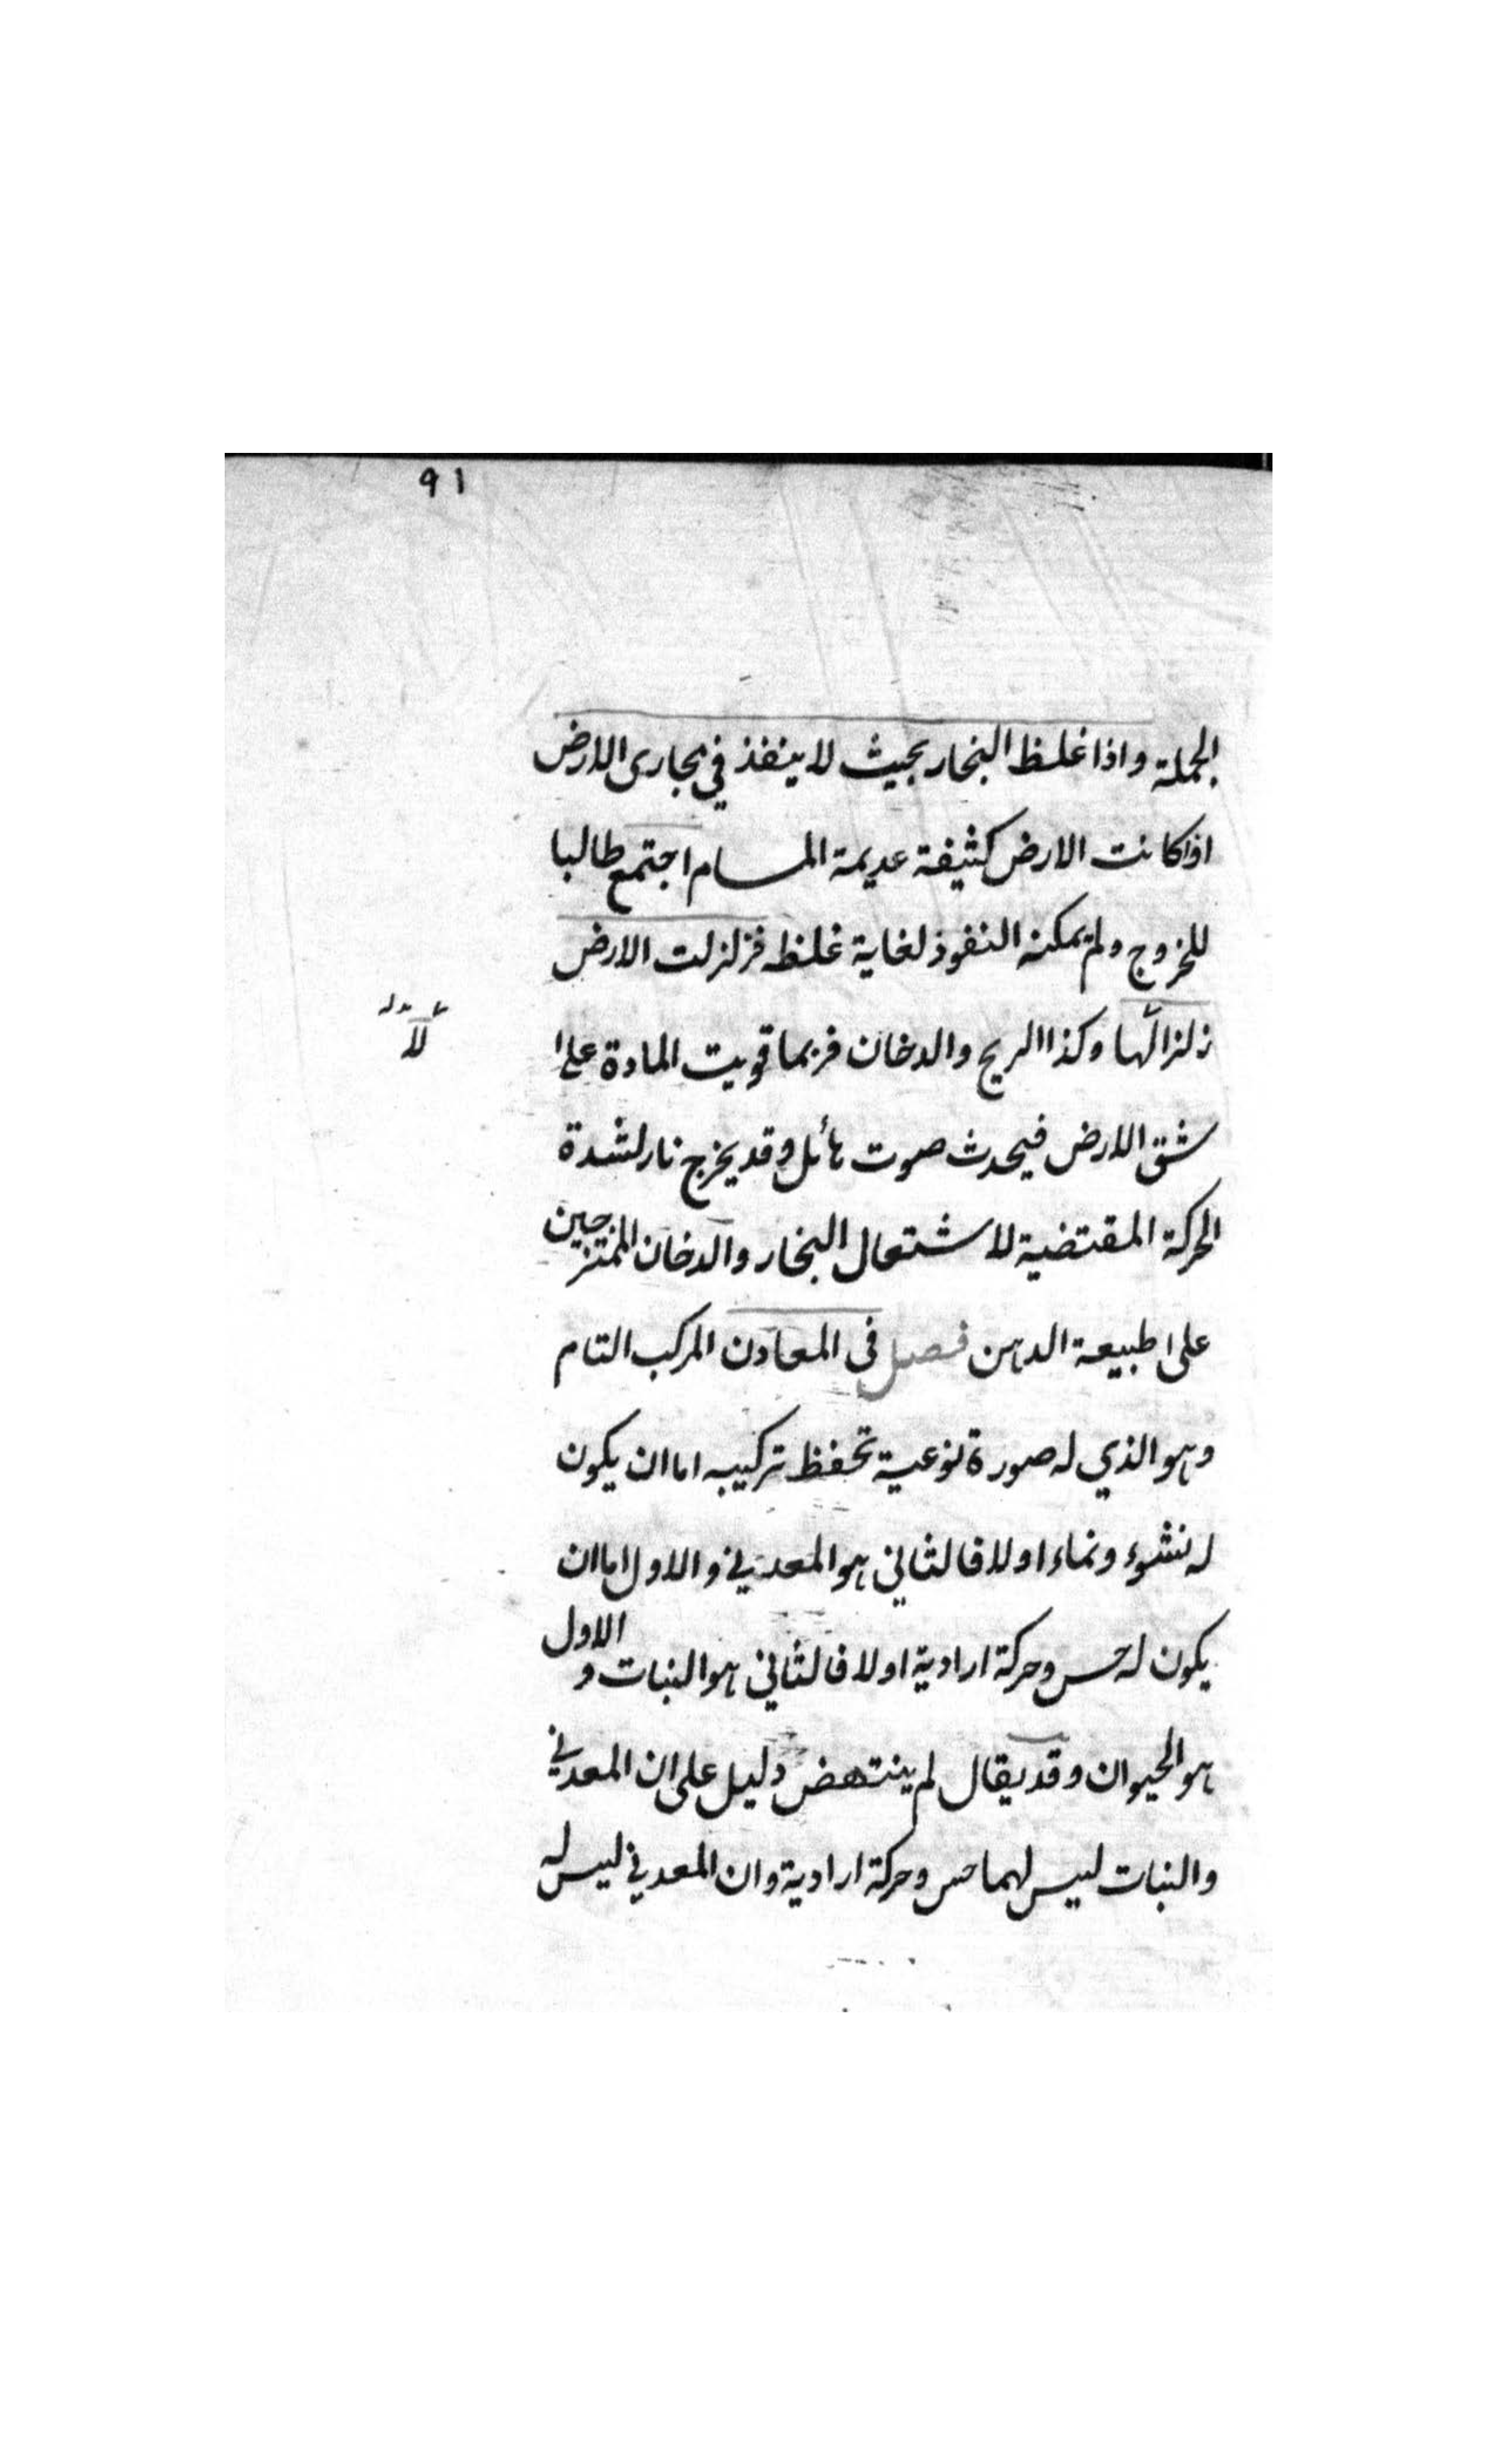 ٩١
الجملة واذا غلظ البخار بحيث لا ينفذ في مجارى الارض
اذا كانت الارض كثيفة عديمة المسام اجتمع طالبا
للخروج ولم يمكنه النفوذ لغاية غلظه فزلزلت الارض
زلزالها وكذا الريح والدخان فربما قويت المادة على
شق الارض فيحدث صوت هائل وقد يخرج نار لشدة
الحركة المقتضية للاشتعال البخار والدخان الممتزجين
على طبيعة الدهن فصل فى المعادن المركب التام
وهو الذي له صورة نوعية تحفظ تركيبه اما ان يكون
له نشوء ونماء او لا فالثاني هو المعدني والاول اما ان
يكون له حس وحركة ارادية او لا فالثاني هو النبات والاول
هو الحيوان وقد يقال لم ينتهض دليل على ان المعدني
والنبات ليس لهما حس وحركة ارادية وان المعدني ليس له